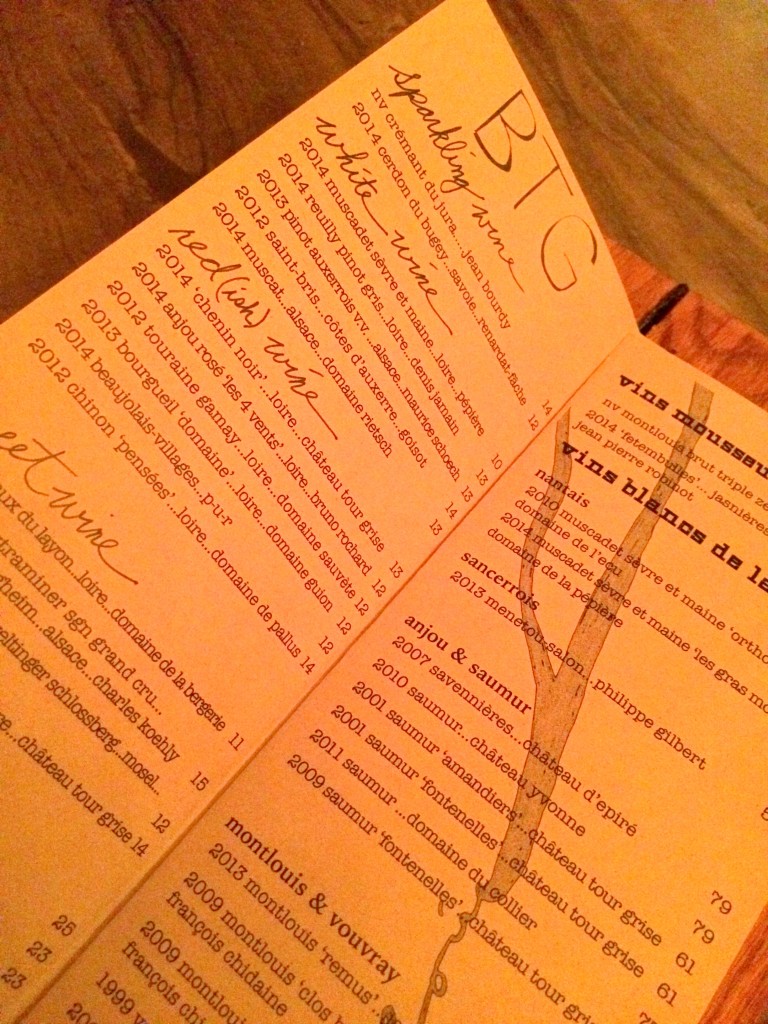 BTG
sparkling wine
nv crémant du jura.....jean bourdy 14
2014 cerdon du bugey...savoie...renardat-fâche 12
white wine
2014 muscadet sèvre et maine...loire...pépière 10
2014 reuilly pinot gris...loire...denis jamain 13
2013 pinot auxerrois v.v....alsace...maurice schoech 13
2012 saint-bris...côtes d'auxerre...goisot 14
2014 muscat...alsace...domaine rietsch 13
red(ish) wine
2014 'chenin noir'...loire...château tour grise 13
2014 anjou rosé 'les 4 vents'...loire...bruno rochard 12
2012 touraine gamay...loire...domaine sauvète 12
2013 bourgueil 'domaine'...loire...domaine guion 12
2014 beaujolais-villages...p-u-r 12
2012 chinon 'pensées'...loire...domaine de pallus 14
eet wine
ux du layon...loire...domaine de la bergerie 11
traminer sgn grand cru...
heim...alsace...charles koehly 15
eltinger schlossberg...mosel... 12
re...château tour grise 14
25
23
23
vins mousseu
nv montlouis brut triple ze
2014 'fetembulles'...jasnières
jean pierre robinot
vins blancs de la
nantais
2010 muscadet sèvre et maine 'ortho
domaine de l'ecu
2014 muscadet sèvre et maine 'les gras mo
domaine de la pépière
sancerrois
2013 menetou-salon...philippe gilbert
anjou & saumur
2007 savennières...château d'epiré
2010 saumur...château yvonne
2001 saumur 'amandiers'...château tour grise 79
2001 saumur 'fontenelles'...château tour grise 79
2011 saumur...domaine du collier 61
2009 saumur 'fontenelles'...château tour gris 61
montlouis & vouvray
2013 montlouis 'remus'...
2009 montlouis 'clos
françois chidaine
2009 montloui
françois chi
1999 v